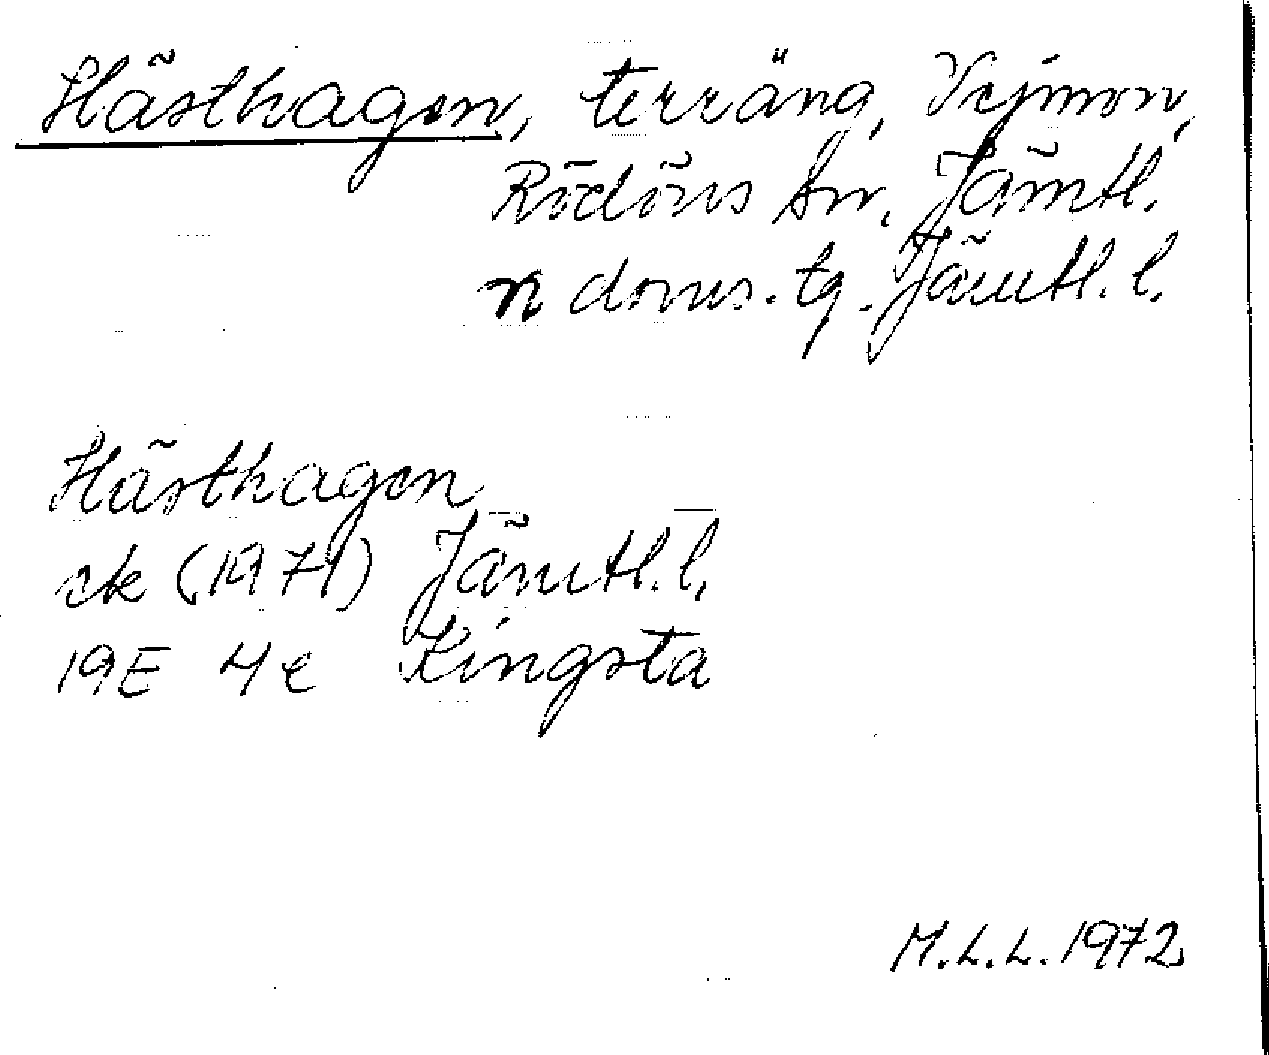 Hästhagen, terräng, Vejmon,
Rödöns sn, Jämtl.
n doms. tg. Jämtl. l.
Hästhagen
ek (1971) Jämtl. l.
19E 4e Kingsta
M.L.L. 1972